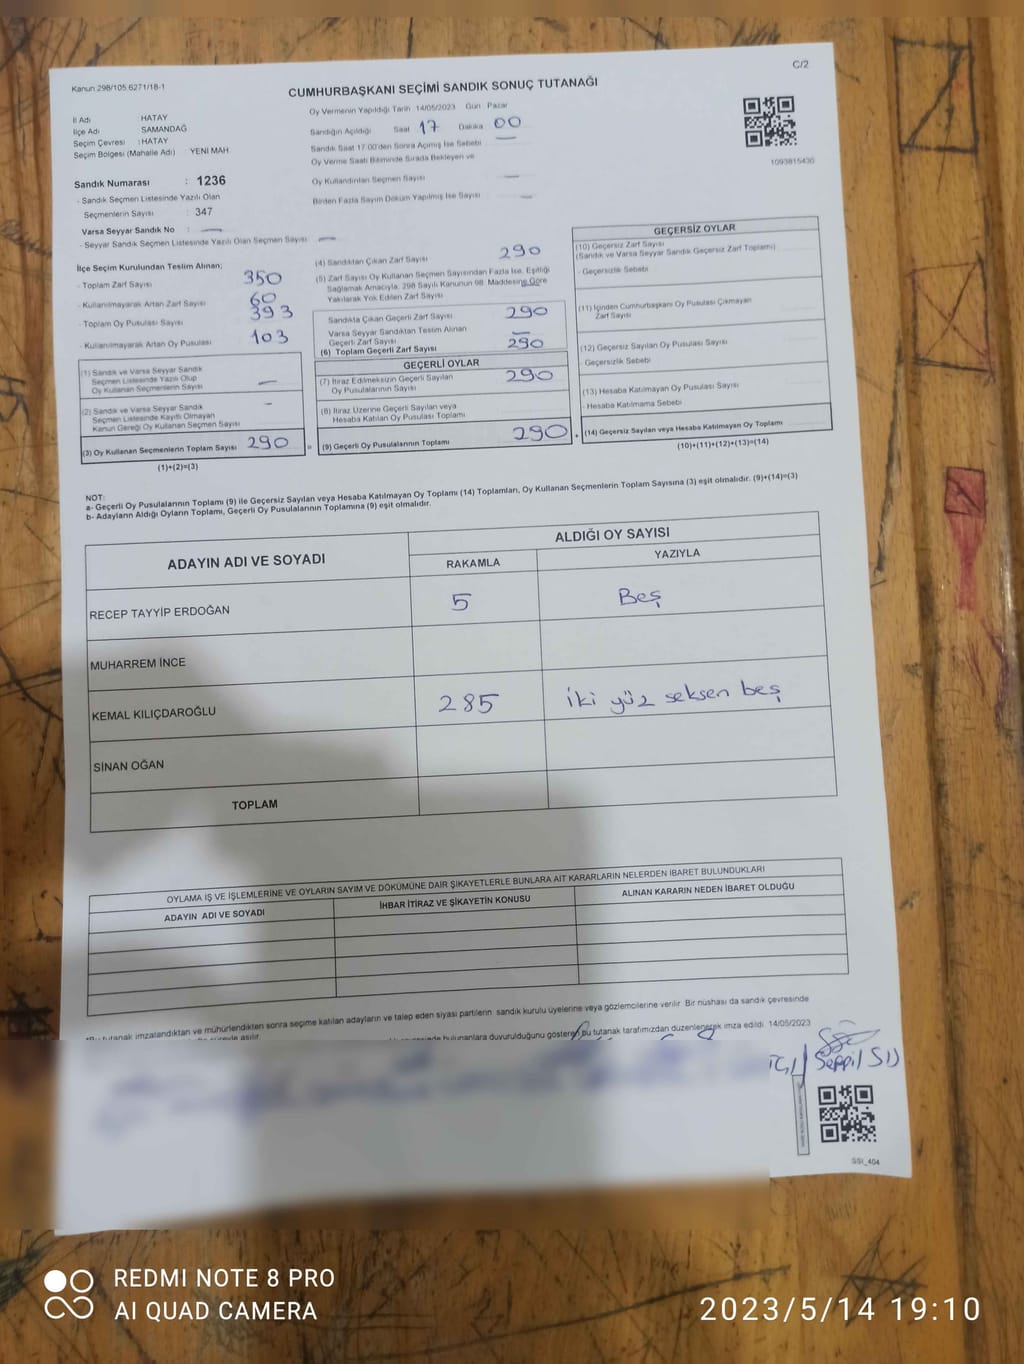 Kanun 298/105 6271/18-1
C/2
CUMHURBAŞKANI SEÇİMİ SANDIK SONUÇ TUTANAĞI
İl Adı HATAY
İlçe Adı SAMANDAĞ
Seçim Çevresi : HATAY
Seçim Bölgesi (Mahalle Adı) YENİ MAH.
Oy Vermenin Yapıldığı Tarih 14/05/2023 Gün Pazar
Sandığın Açıldığı Saat 17 Dakika 00
Sandık Saat 17.00'den Sonra Açımış İse Sebebi
Oy Verme Saati Bitiminde Sırada Bekleyen ve
Oy Kullandırılan Seçmen Sayısı —
Birden Fazla Sayım Döküm Yapılmış İse Sayısı —
1093815430
Sandık Numarası : 1236
- Sandık Seçmen Listesinde Yazılı Olan
Seçmenlerin Sayısı : 347
Varsa Seyyar Sandık No : —
- Seyyar Sandık Seçmen Listesinde Yazılı Olan Seçmen Sayısı —
İlçe Seçim Kurulundan Teslim Alınan;
- Toplam Zarf Sayısı 350
- Kullanılmayarak Artan Zarf Sayısı 60
- Toplam Oy Pusulası Sayısı 393
- Kullanılmayarak Artan Oy Pusulası 103
(1) Sandık ve Varsa Seyyar Sandık
Seçmen Listesinde Yazılı Olup
Oy Kullanan Seçmenlerin Sayısı —
(2) Sandık ve Varsa Seyyar Sandık
Seçmen Listesinde Kayıtlı Olmayan
Kanun Gereği Oy Kullanan Seçmen Sayısı —
(3) Oy Kullanan Seçmenlerin Toplam Sayısı 290
(1)+(2)=(3)
(4) Sandıktan Çıkan Zarf Sayısı 290
(5) Zarf Sayısı Oy Kullanan Seçmen Sayısından Fazla İse, Eşitliği
Sağlamak Amacıyla, 298 Sayılı Kanunun 98. Maddesine Göre
Yakılarak Yok Edilen Zarf Sayısı
Sandıkta Çıkan Geçerli Zarf Sayısı 290
Varsa Seyyar Sandıktan Teslim Alınan
Geçerli Zarf Sayısı —
(6) Toplam Geçerli Zarf Sayısı 290
GEÇERLİ OYLAR
(7) İtiraz Edilmeksizin Geçerli Sayılan
Oy Pusulalarının Sayısı 290
(8) İtiraz Üzerine Geçerli Sayılan veya
Hesaba Katılan Oy Pusulası Toplamı
(9) Geçerli Oy Pusulalarının Toplamı 290
GEÇERSİZ OYLAR
(10) Geçersiz Zarf Sayısı
(Sandık ve Varsa Seyyar Sandık Geçersiz Zarf Toplamı)
- Geçersizlik Sebebi
(11) İçinden Cumhurbaşkanı Oy Pusulası Çıkmayan
Zarf Sayısı
(12) Geçersiz Sayılan Oy Pusulası Sayısı
- Geçersizlik Sebebi
(13) Hesaba Katılmayan Oy Pusulası Sayısı
- Hesaba Katılmama Sebebi
(14) Geçersiz Sayılan veya Hesaba Katılmayan Oy Toplamı
(10)+(11)+(12)+(13)=(14)
NOT:
a- Geçerli Oy Pusulalarının Toplamı (9) ile Geçersiz Sayılan veya Hesaba Katılmayan Oy Toplamı (14) Toplamları, Oy Kullanan Seçmenlerin Toplam Sayısına (3) eşit olmalıdır. (9)+(14)=(3)
b- Adayların Aldığı Oyların Toplamı, Geçerli Oy Pusulalarının Toplamına (9) eşit olmalıdır.
ADAYIN ADI VE SOYADI
ALDIĞI OY SAYISI
RAKAMLA YAZIYLA
RECEP TAYYİP ERDOĞAN 5 Beş
MUHARREM İNCE
KEMAL KILIÇDAROĞLU 285 iki yüz seksen beş
SİNAN OĞAN
TOPLAM
OYLAMA İŞ VE İŞLEMLERİNE VE OYLARIN SAYIM VE DÖKÜMÜNE DAİR ŞİKAYETLERLE BUNLARA AİT KARARLARIN NELERDEN İBARET BULUNDUKLARI
ADAYIN ADI VE SOYADI İHBAR İTİRAZ VE ŞİKAYETİN KONUSU ALINAN KARARIN NEDEN İBARET OLDUĞU
tutanak imzalandıktan ve mühürlendikten sonra seçime katılan adayların ve talep eden siyasi partilerin sandık kurulu üyelerine veya gözlemcilerine verilir. Bir nüshası da sandık çevresinde
asılır. bulunanlara duyurulduğunu gösteren bu tutanak tarafımızdan düzenlenerek imza edildi. 14/05/2023
SSI_404
REDMI NOTE 8 PRO
AI QUAD CAMERA
2023/5/14 19:10